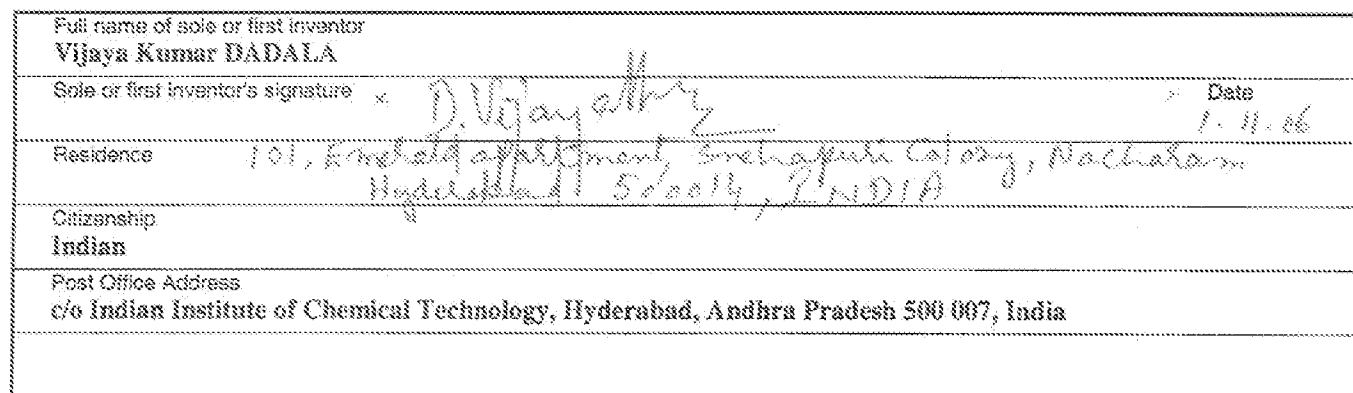 Full name of sole or first inventor
Vijaya Kumar DADALA
Sole or first inventor's signature × D. Vijay Date
1. 11. 06
Residence 101, Emerald apartment, Snehapuri Colony, Nacharam
Hyderabad 500014, INDIA
Citizenship
Indian
Post Office Address
c/o Indian Institute of Chemical Technology, Hyderabad, Andhra Pradesh 500 007, India